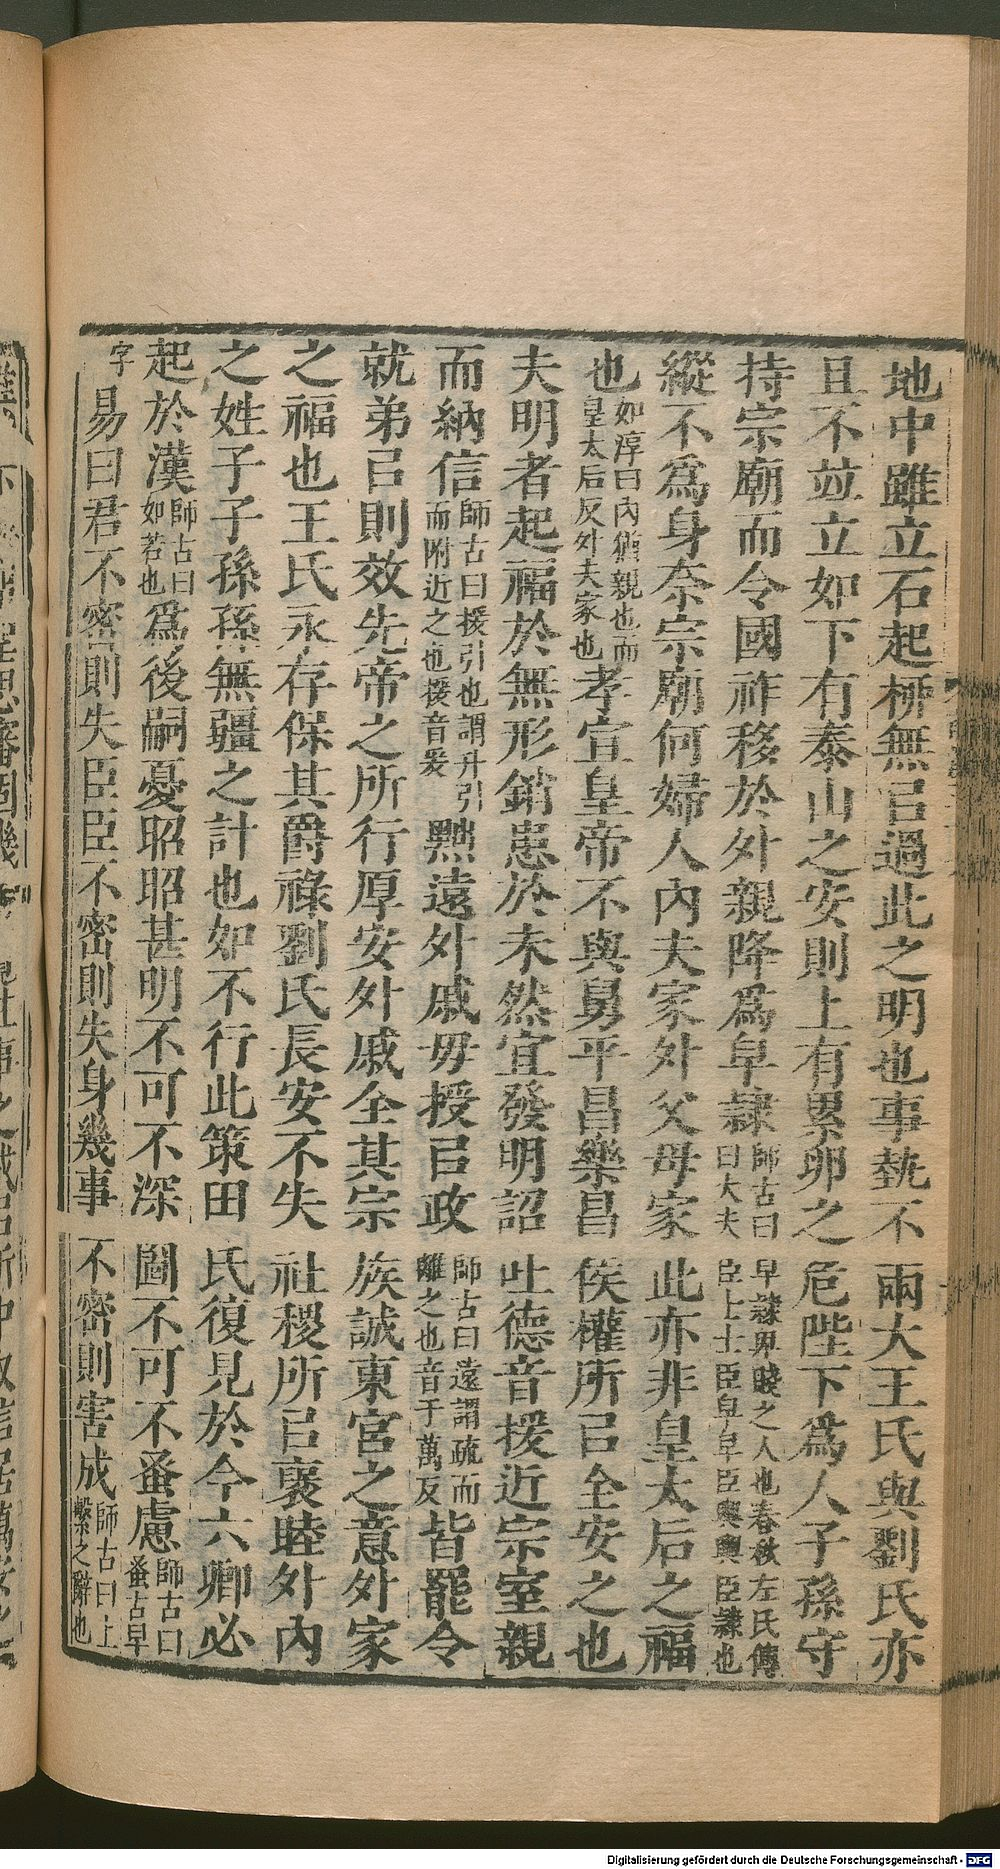 地中雖立石起柳無㠯過此之明也事埶不兩大王氏與劉氏亦
且不竝立如下有泰山之安則上有累卵之危陛下為人子孫守
持宗廟而令國祚移於外親降為皁隷師古曰皁隷卑賤之人也春秋左氏傳曰大夫臣士士臣皁皁臣輿輿臣隷也
縱不為身奈宗廟何婦人內夫家外父母家此亦非皇太后之福
也如淳曰內猶親也而皇太后反外夫家也孝宣皇帝不與舅平昌樂昌侯權所㠯全安之也
夫明者起福於無形銷患於未然宜發明詔吐德音援近宗室親
而納信師古曰援引也謂升引而附近之也援音爰黜遠外戚毋授㠯政師古曰遠謂疏而離之也音于萬反皆罷令
就弟㠯則效先帝之所行厚安外戚全其宗族誠東宮之意外家
之福也王氏永存保其爵祿劉氏長安不失社稷所㠯襃睦外內
之姓子子孫孫無疆之計也如不行此策田氏復見於今六卿必
起於漢師古曰如若也為後嗣憂昭昭甚明不可不深圖不可不蚤慮師古曰蚤古早字
易曰君不密則失臣臣不密則失身幾事不密則害成師古曰上繫之辭也
Digitalisierung gefördert durch die Deutsche Forschungsgemeinschaft - DFG